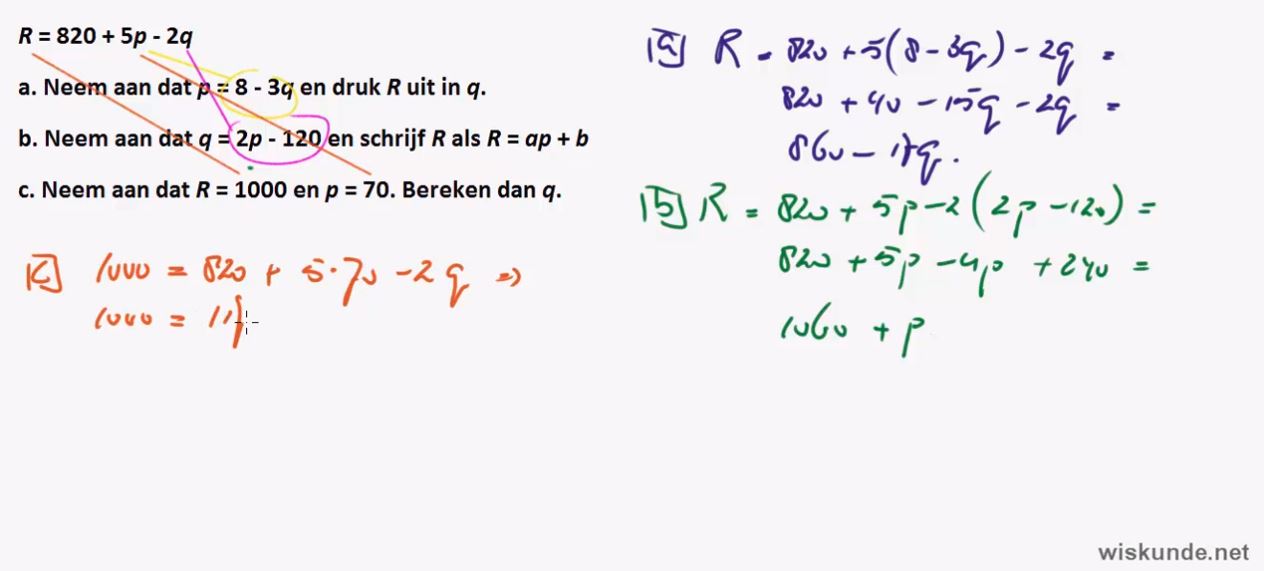 R = 820 + 5p - 2q
a. Neem aan dat p = 8 - 3q en druk R uit in q.
b. Neem aan dat q = 2p - 120 en schrijf R als R = ap + b
c. Neem aan dat R = 1000 en p = 70. Bereken dan q.
a R = 820 + 5(8 - 3q) - 2q =
820 + 40 - 15q - 2q =
860 - 17q.
b R = 820 + 5p - 2(2p - 120) =
820 + 5p - 4p + 240 =
1060 + p
c 1000 = 820 + 5·70 - 2q ⇒
1000 = 11
wiskunde.net